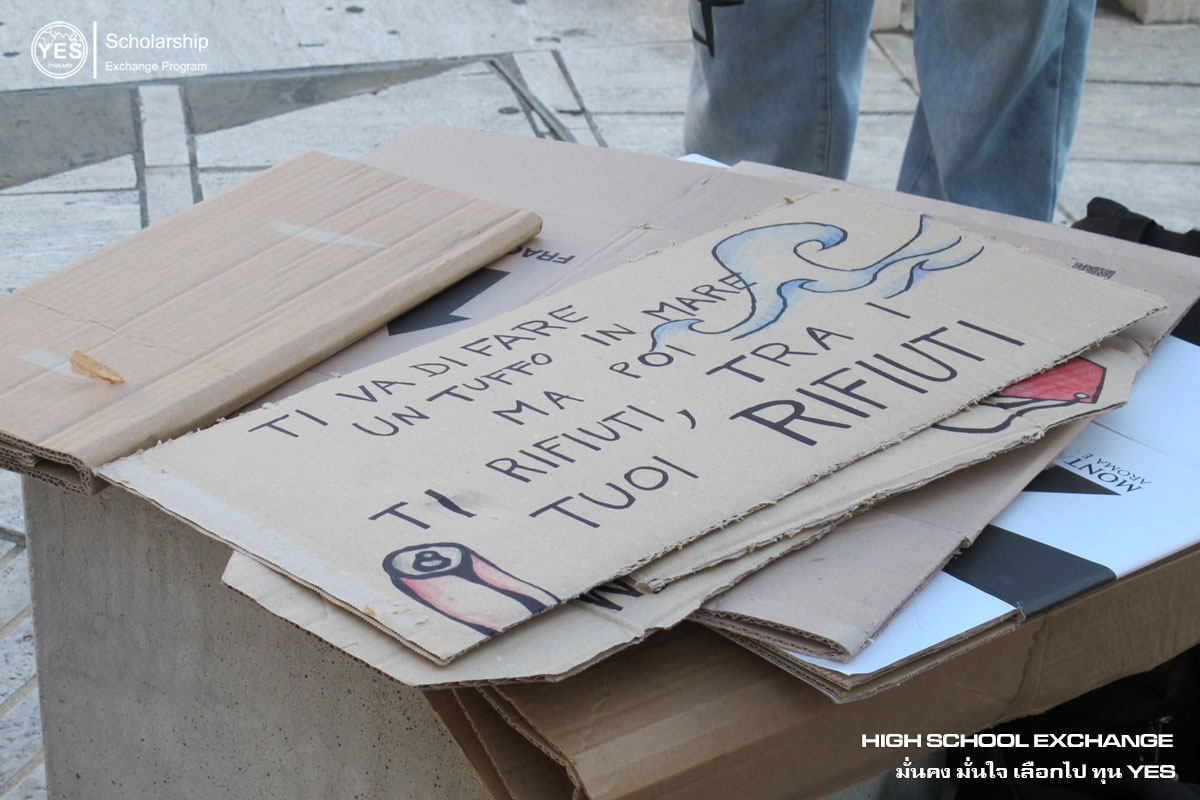 YES
THAILAND
Scholarship
Exchange Program
FRA
TI VA DI FARE
UN TUFFO IN MARE
MA POI
TI RIFIUTI, TRA I
TUOI RIFIUTI
MONT
AROMA E
W
HIGH SCHOOL EXCHANGE
มั่นคง มั่นใจ เลือกไป ทุน YES